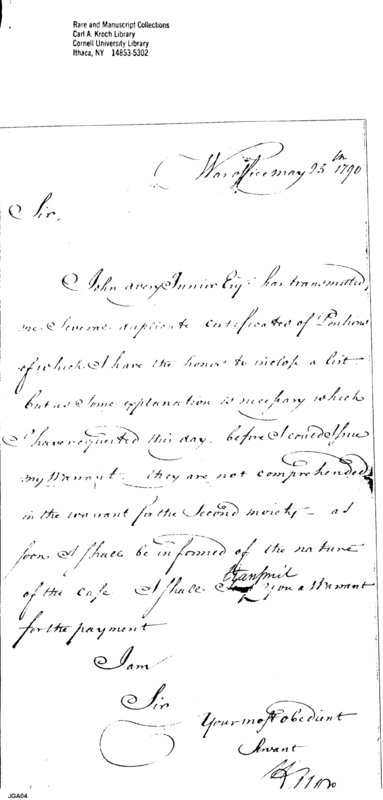 Rare and Manuscript Collections
Carl A. Kroch Library
Cornell University Library
Ithaca, NY 14853-5302
War office may 25th 1790
Sir,
John avery Junier Esqr. has transmited
me Severel duplicate certificates of Pentions
of which I have the honor to inclose a list
but as Some explanation is necessary which
I have requested this day before I could Issue
my Warrant they are not comprehended
in the warrant for the Second moiety – as
soon I shall be informed of the nature
of the case I shall transmit you a Warrant
for the payment
I am
Sir
Your most obedient
Servant
H Knox
JGA04